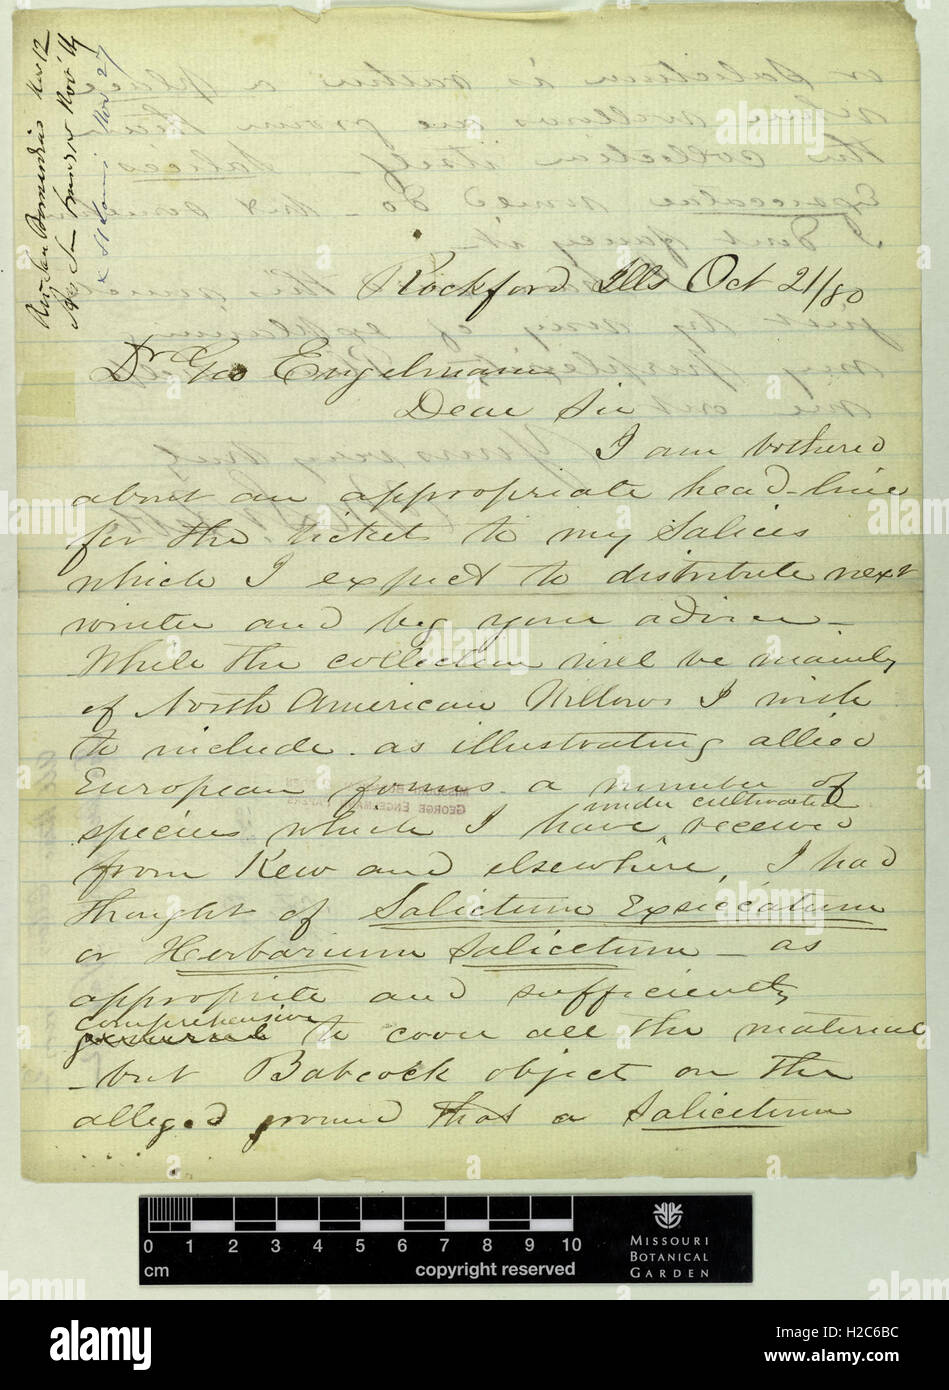 Rockford Ills Oct 21/80
Dr Geo Engelmann
Dear Sir
I am bothered
about an appropriate head-line
for the tickets to my Salices
which I expect to distribute next
winter and beg your advice –
While the collection will be mainly
of North American Willows I wish
to include as illustrating allied
European forms a number of
species which I have under cultivation received
from Kew and elsewhere, I had
thought of Salictum Exsiccatum
or Herbarium Salicetum – as
approprite and sufficiently
comprehensive
general to cover all the material
– but Babcock objects on the
alleged ground that a Salicetum
GEORGE ENGELMANN
0 1 2 3 4 5 6 7 8 9 10
cm
copyright reserved
MISSOURI
BOTANICAL
GARDEN
alamy
Image ID: H2C6BC
www.alamy.com